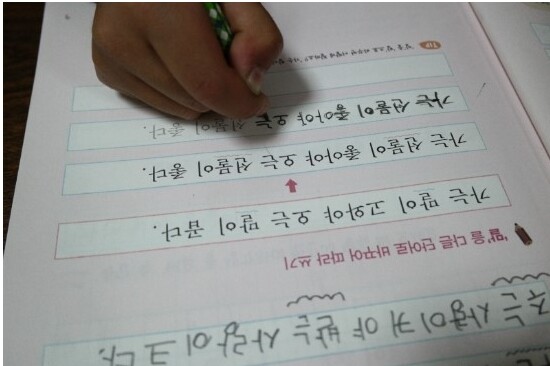 주는 사랑이 커야 받는 사랑이 크다.
'말'을 다른 단어로 바꾸어 따라 쓰기
가는 말이 고와야 오는 말이 곱다.
가는 선물이 좋아야 오는 선물이 좋다.
가는 선물이 좋아야 오는 선물이 좋다.